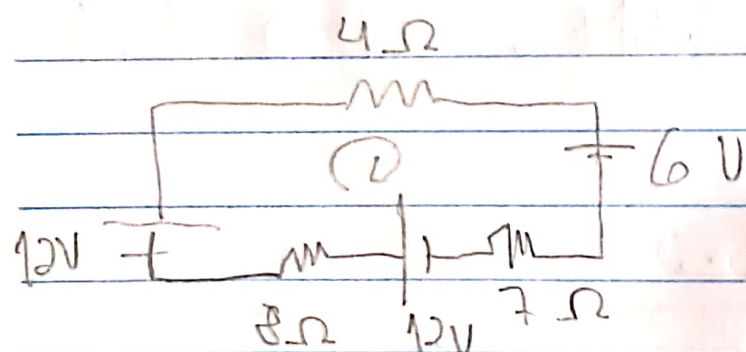 4 Ω
6 V
12V
8Ω 12V 7 Ω